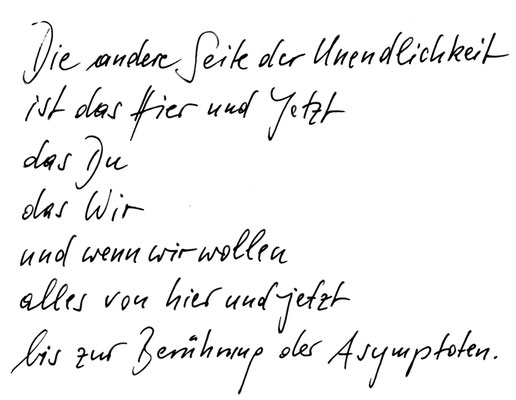 Die andere Seite der Unendlichkeit
ist das Hier und Jetzt
das Du
das Wir
und wenn wir wollen
alles von hier und jetzt
bis zur Berührung der Asymptoten.